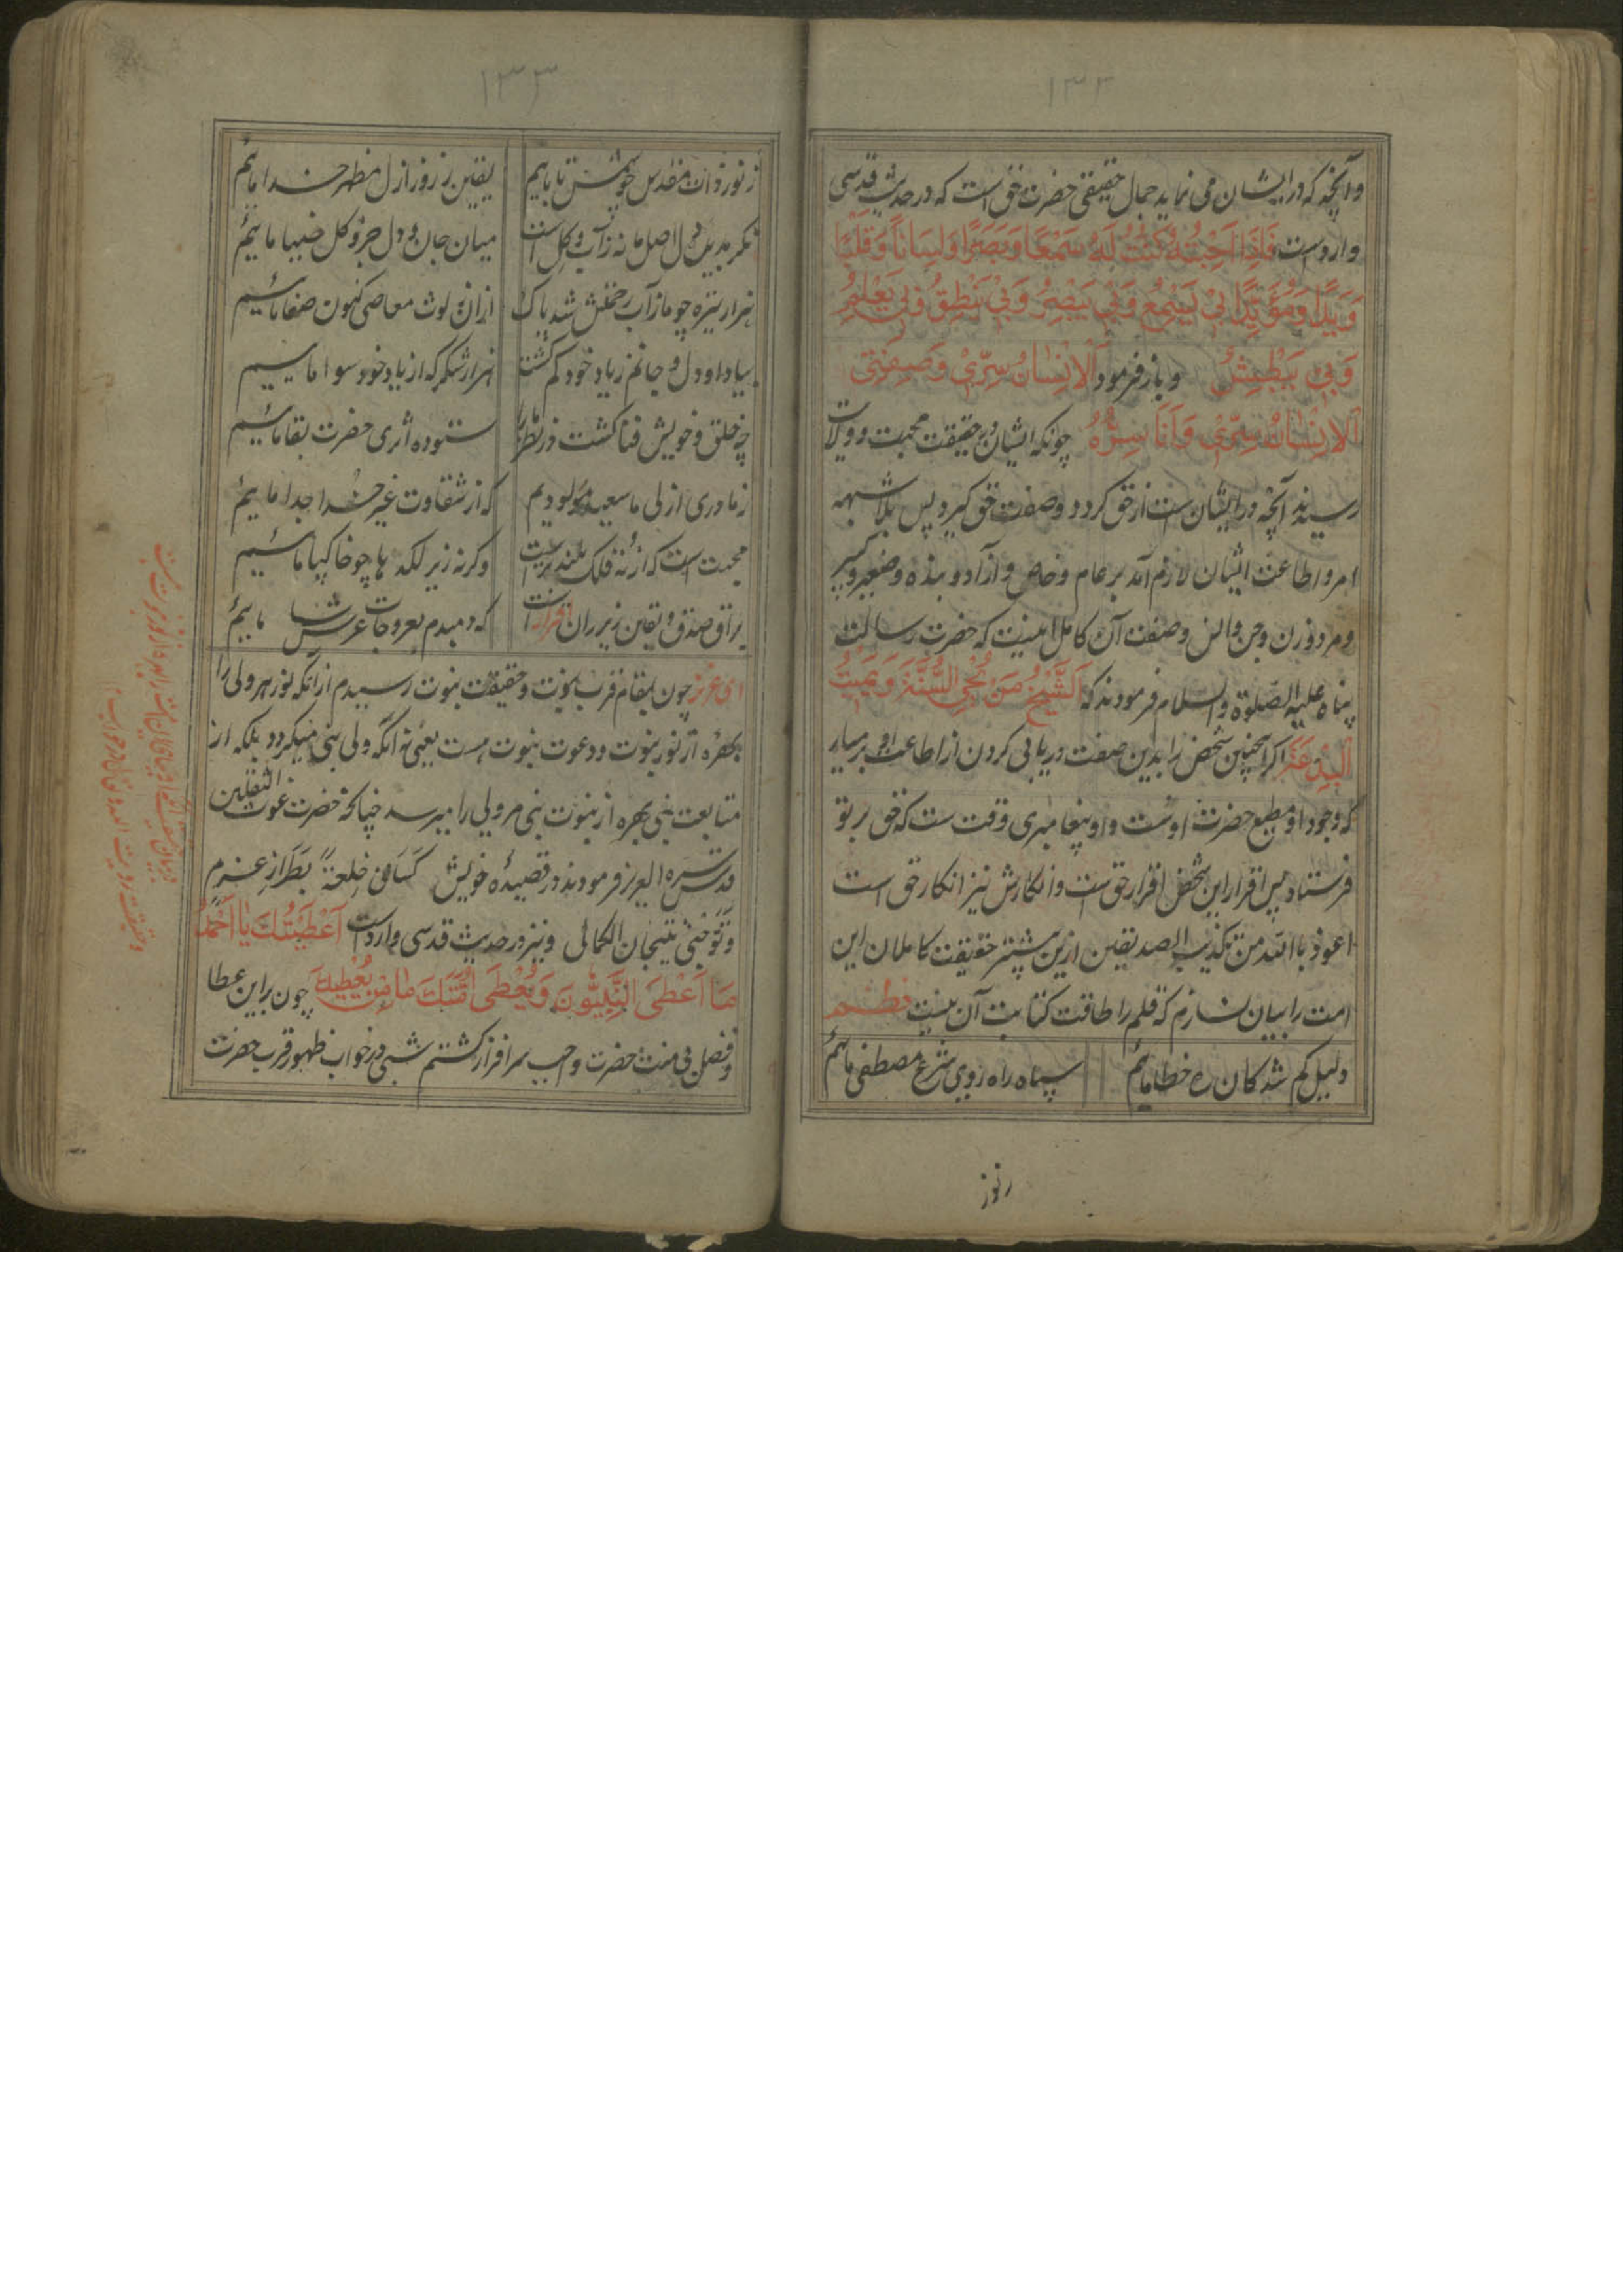 ۱۳۲
وآنچه که در ایشان می نماید جمال حقیقی حضرت حق است که در حدیث قدسی
وارد است فَاِذَا اَحْبَبْتُهُ كُنْتُ لَهُ سَمْعًا وَبَصَرًا وَلِسَانًا وَقَلْبًا
وَيَدًا وَمُؤَيِّدًا بِيْ يَسْمَعُ وَبِيْ يَبْصِرُ وَبِيْ يَنْطِقُ وَبِيْ يَعْلَمُ
وَبِيْ يَبْطِشُ و باز فرمود اَلْاِنْسَانُ سِرِّيْ وَصِفَتِيْ
اَلْاِنْسَانُ سِرِّيْ وَاَنَا سِرُّهُ چونکه ایشان در حقیقت محبت و ولایت
رسیدند آنچه در ایشان است از حق کردد وصفت حق کیرد پس بلا شبهه
امر و اطاعت ایشان لازم آمد بر عام و خاص و آزاد و بنده و صغیر و کبیر
و مرد و زن و جن و انس و صفت آن کامل اینست که حضرت رسالت
پناه علیه الصلوة والسلام فرمودند که اَلشَّيْخُ مَنْ يُحْيِ السُّنَّةَ وَيُمِيْتُ
الْبِدْعَةَ اکر اینچنین شخص را بدین صفت دریابی کردن از اطاعت او بر میار
که وجود او مطیع حضرت اوست و او پیغامبری وقت ست که حق بر تو
فرستاد پس اقرار این شخص اقرار حق است و انکارش نیز انکار حق است
اعوذ بالله من تکذیب الصدیقین ازین پیشتر حقیقت کاملان این
امت را بیان نسازم که قلم را طاقت کتابت آن نیست نظم
دلیل کم شدکان ره خطا مائیم سپاه راه روی شرع مصطفی مائیم
ز نور
۱۳۳
ز نور ذات مقدس چو شمس تابایم یقین ز روز ازل مظهر خدا مائیم
میان جان و دل جزو کل ضیا مائیم
هزار تیزه چو ما ز آب رحمتش شد پاک ازان لوث معاصی کنون صفا مائیم
بیاد او دل و جانم ز یاد خود کم کشت هزار شکر که از یاد خود سوا مائیم
چه خلق و خویش فنا کشت در نظر مارا ستوده اثری حضرت بقا مائیم
ز مادری ازلی ما سعید مولودیم که از شقاوت غیر خدا جدا مائیم
محبت است که از نه فلک بلند تر است وکرنه زیر لکد ها چو خاکپا مائیم
براق صدق و یقین زیر ران است که دمبدم بعروجات عرش مائیم
ای عزیز چون بمقام قرب نبوت و حقیقت نبوت رسیدم از آنکه نور هر ولی را
بهره از نور نبوت و دعوت نبوت هست یعنی نه آنکه ولی نبی میکردد بلکه از
متابعت نبی بهره از نبوت نبی مر ولی را میرسد چنانکه حضرت غوث الثقلین
قدس سره العزیز فرمودند در قصیده خویش كَسَانِيْ خِلْعَةً بِطَرَازِ عَزْمٍ
وَتَوَّجَنِيْ بِتِيْجَانِ الْكَمَالِ و نیز در حدیث قدسی وارد است اَعْطَيْتُكَ يَا اَحْمَدُ
مَا اَعْطَى النَّبِيُّوْنَ وَيُعْطَى اُمَّتَكَ چون بر این عطا
و فضل بی منت حضرت وهب سرافراز کشتم شبی در خواب ظهور قرب حضرت